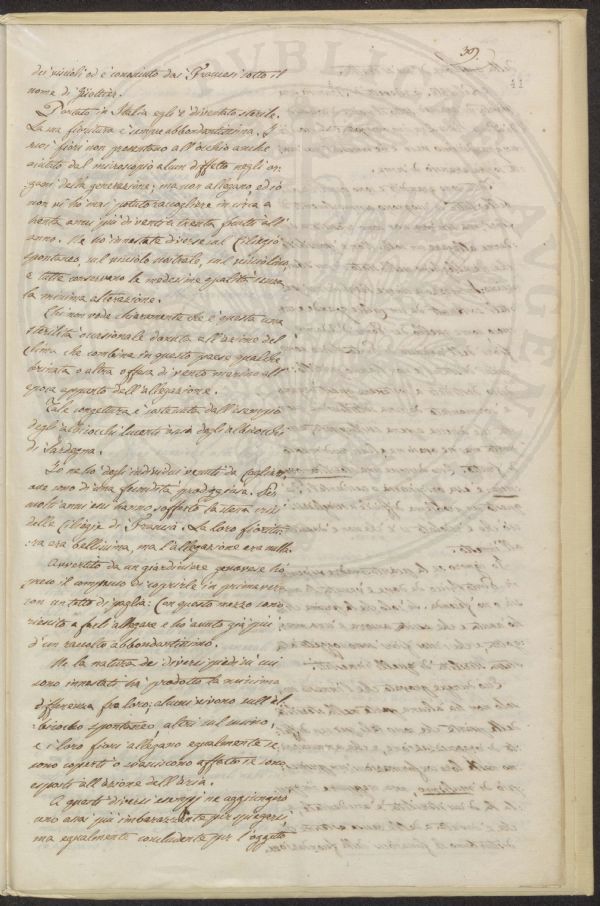 39.
41
dei viscioli ed è conosciuto dai Francesi sotto il
nome di Griottier.
Portato in Italia egli è diventato sterile.
La sua fioritura è sempre abbondantissima. I
suoi fiori non presentano all'occhio anche
aiutato dal microscopio alcun difetto negli or-
gani della generazione; ma non allegano, ed io
non vi ho mai potuto raccogliere in circa a
trenta anni più di venti a trenta frutti all'
anno. Ne ho innestate diverse sul Ciliegio
spontaneo, sul visciolo nostrale, sul visciolino,
e tutte conservano le medesime qualità senza
la minima alterazione.
Chi non vede chiaramente che è questa una
sterilità occasionale dovuta all'azione del
Clima che combina in questo paese qualche
brinata o altra offesa di vento marino all'
epoca appunto dell'allegazione.
Tale congettura è sostenuta dall'esempio
degli albicocchi lucenti ossia degli albicocchi
di Sardegna.
Io ne ho degli individui venuti da Cagliari,
ove sono di una fecondità prodigiosa. Per
molti anni essi hanno sofferto la stessa crisi
delle Ciliegie di Francia. La loro fioritu-
ra era bellissima, ma l'allegazione era nulla.
Avvertito da un giardiniere genovese ho
preso il compenso di coprirle in primavera
con un tetto di paglia: Con questo mezzo sono
riuscito a farli allegare e ho avuto già più
d'un raccolto abbondantissimo.
Ne la natura dei diversi piedi su cui
sono innestati ha prodotto la minima
differenza fra loro; alcuni vivono sull'al-
bicocco spontaneo, altri sul susino,
e i loro fiori allegano egualmente se
sono coperti o svaniscono affatto se sono
esposti all'azione dell'aria.
A questi diversi esempj ne aggiungerò
uno assai più imbarazzante per spiegarsi,
ma egualmente concludente per l'oggetto